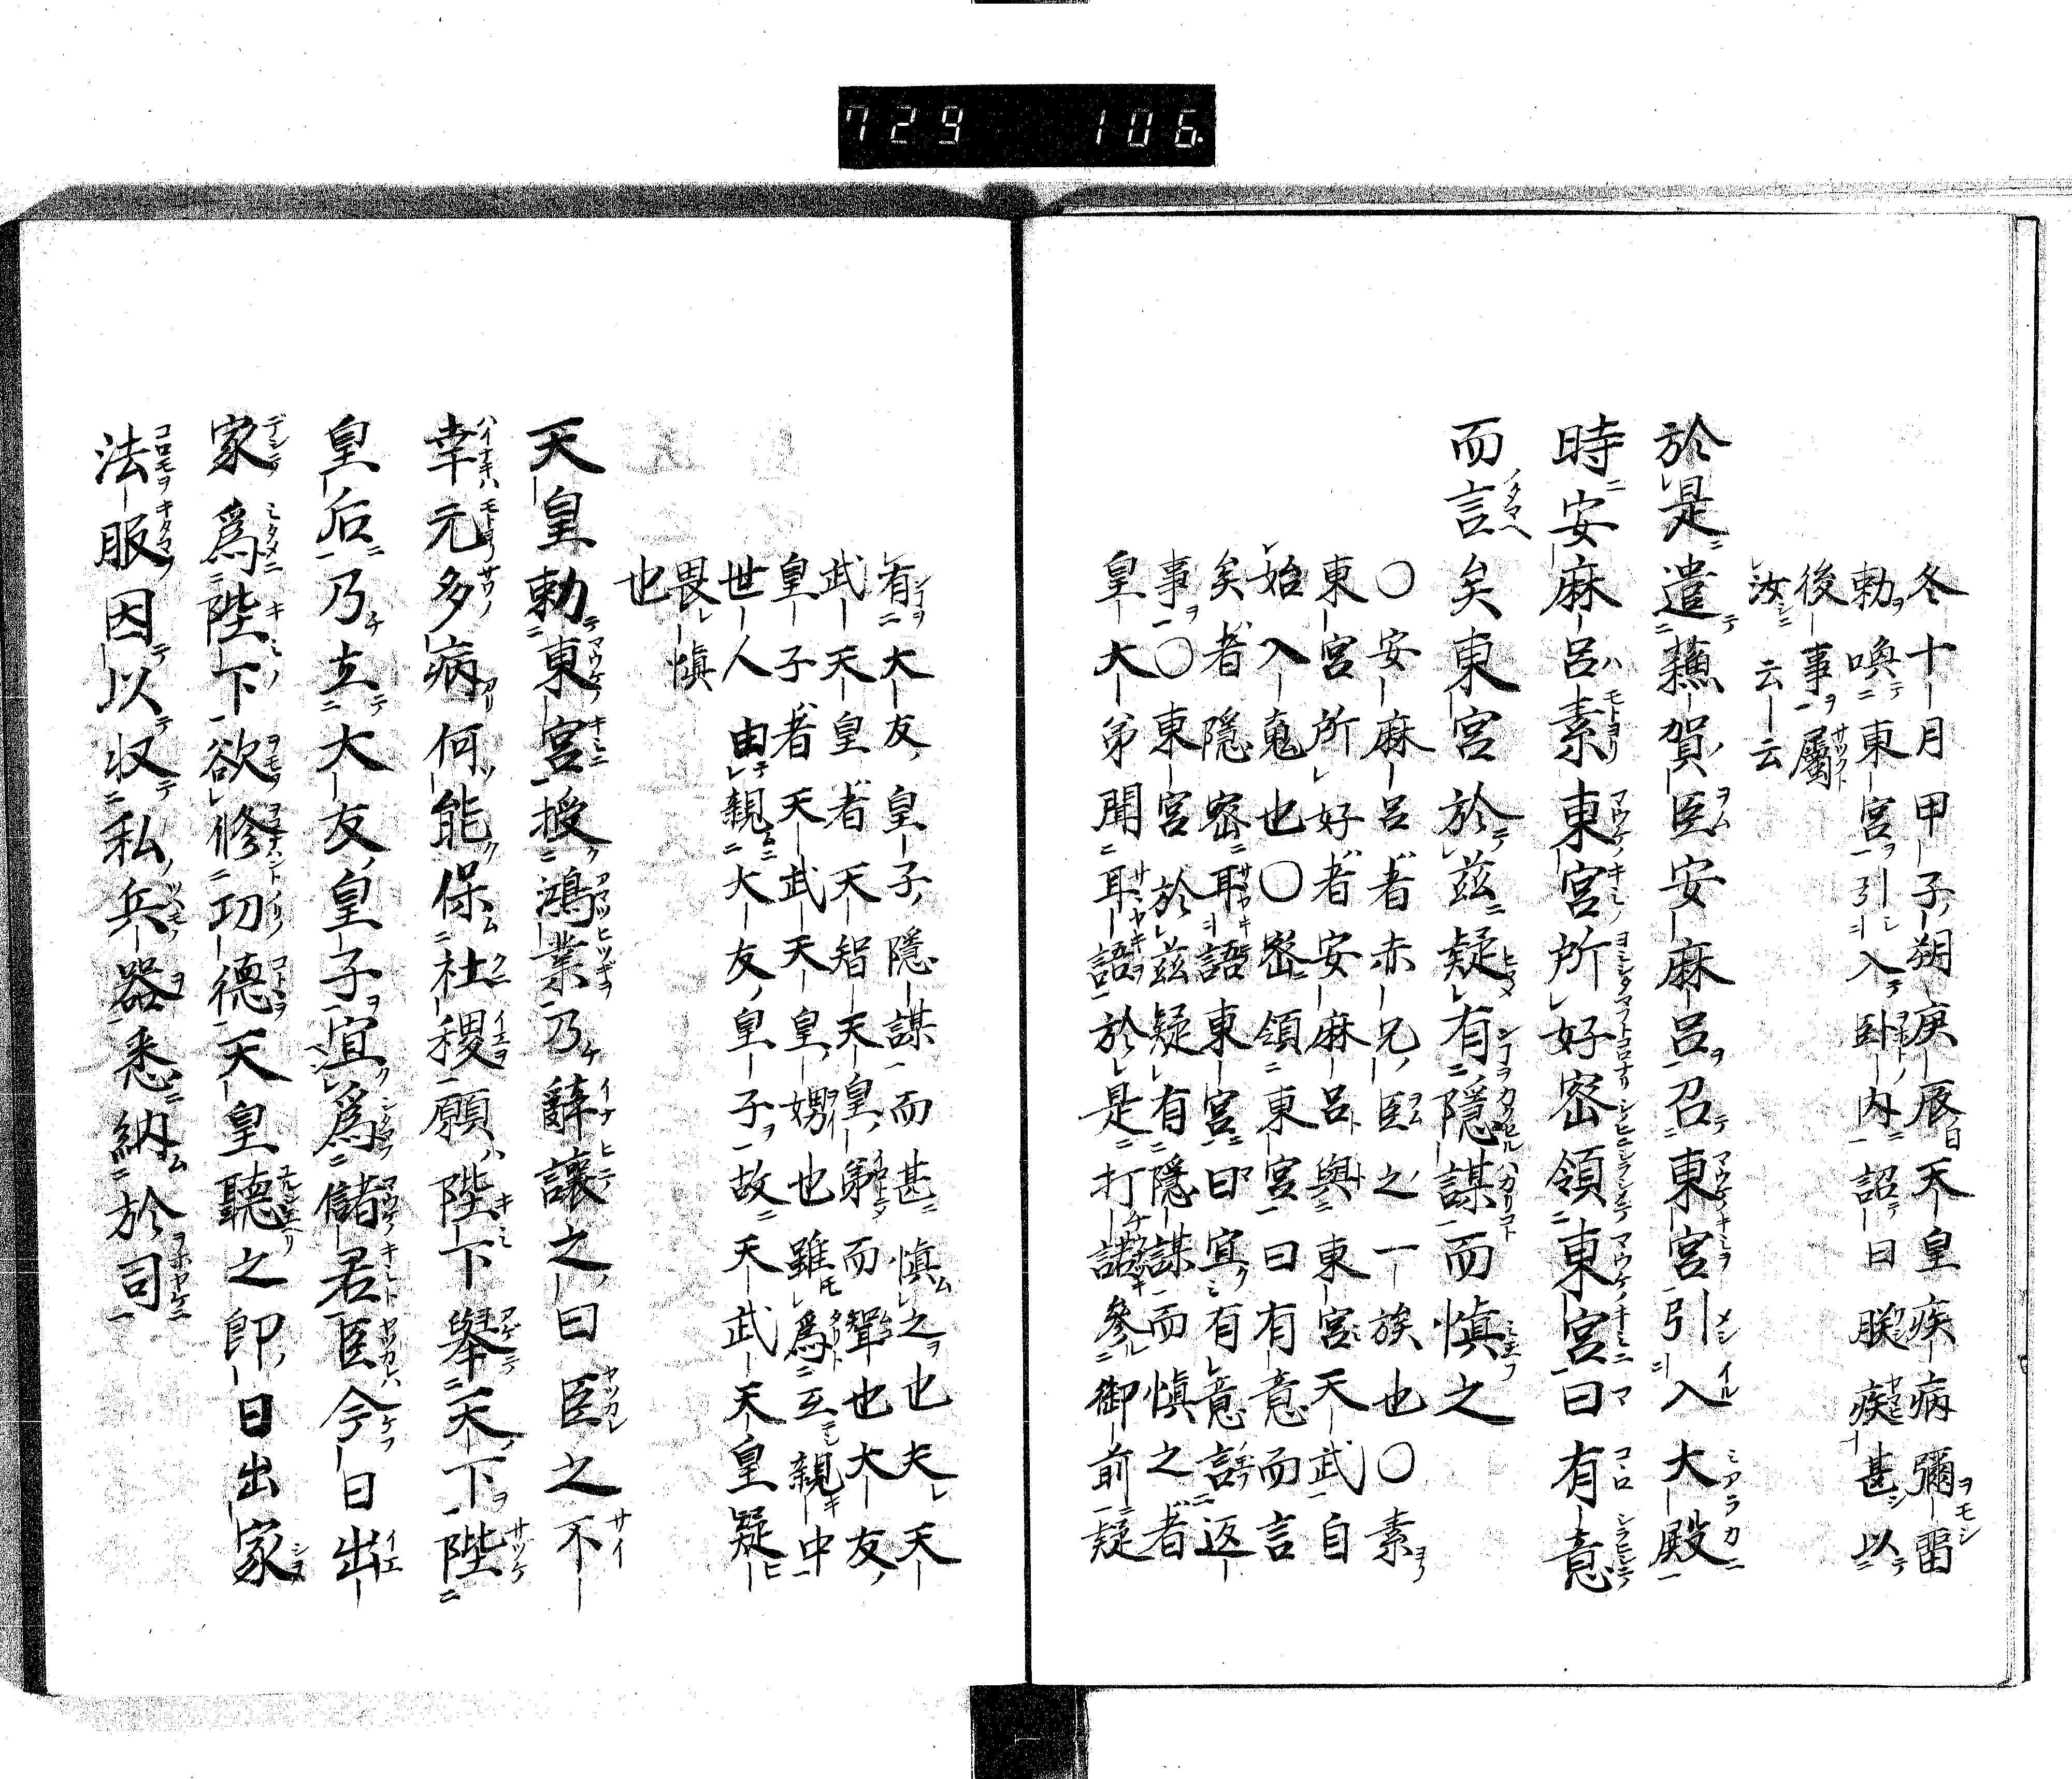 729 106
冬十月甲子朔庚辰日天皇疾病彌留
勅喚東宮引入卧内詔曰朕疾甚以
後事屬
汝云云
於是遣蘓賀臣安麻呂召東宮引入大殿
時安麻呂素東宮所好密領東宮曰有意
而言矣東宮於茲疑有隠謀而慎之
〇安麻呂者赤兄臣之一族也〇素
東宮所好者安麻呂與東宮天武自
始入鬼也〇密領東宮曰有意而言
矣者隠密耳語東宮曰宜有意言返
事〇東宮於茲疑有隠謀而慎之者
皇大弟聞耳語於是打諾參御前疑
有大友皇子隠謀而甚慎之也夫天
武天皇者天智天皇弟而聟也大友
皇子者天武天皇甥也雖為互親中
世人由親大友皇子故天武天皇疑
畏慎
也
天皇勅東宮授鴻業乃辭讓之曰臣之不
幸元多病何能保社稷願陛下舉天下陛
皇后乃立大友皇子宜為儲君臣今日出
家為陛下欲修功德天皇聽之即日出家
法服因以収私兵器悉納於司